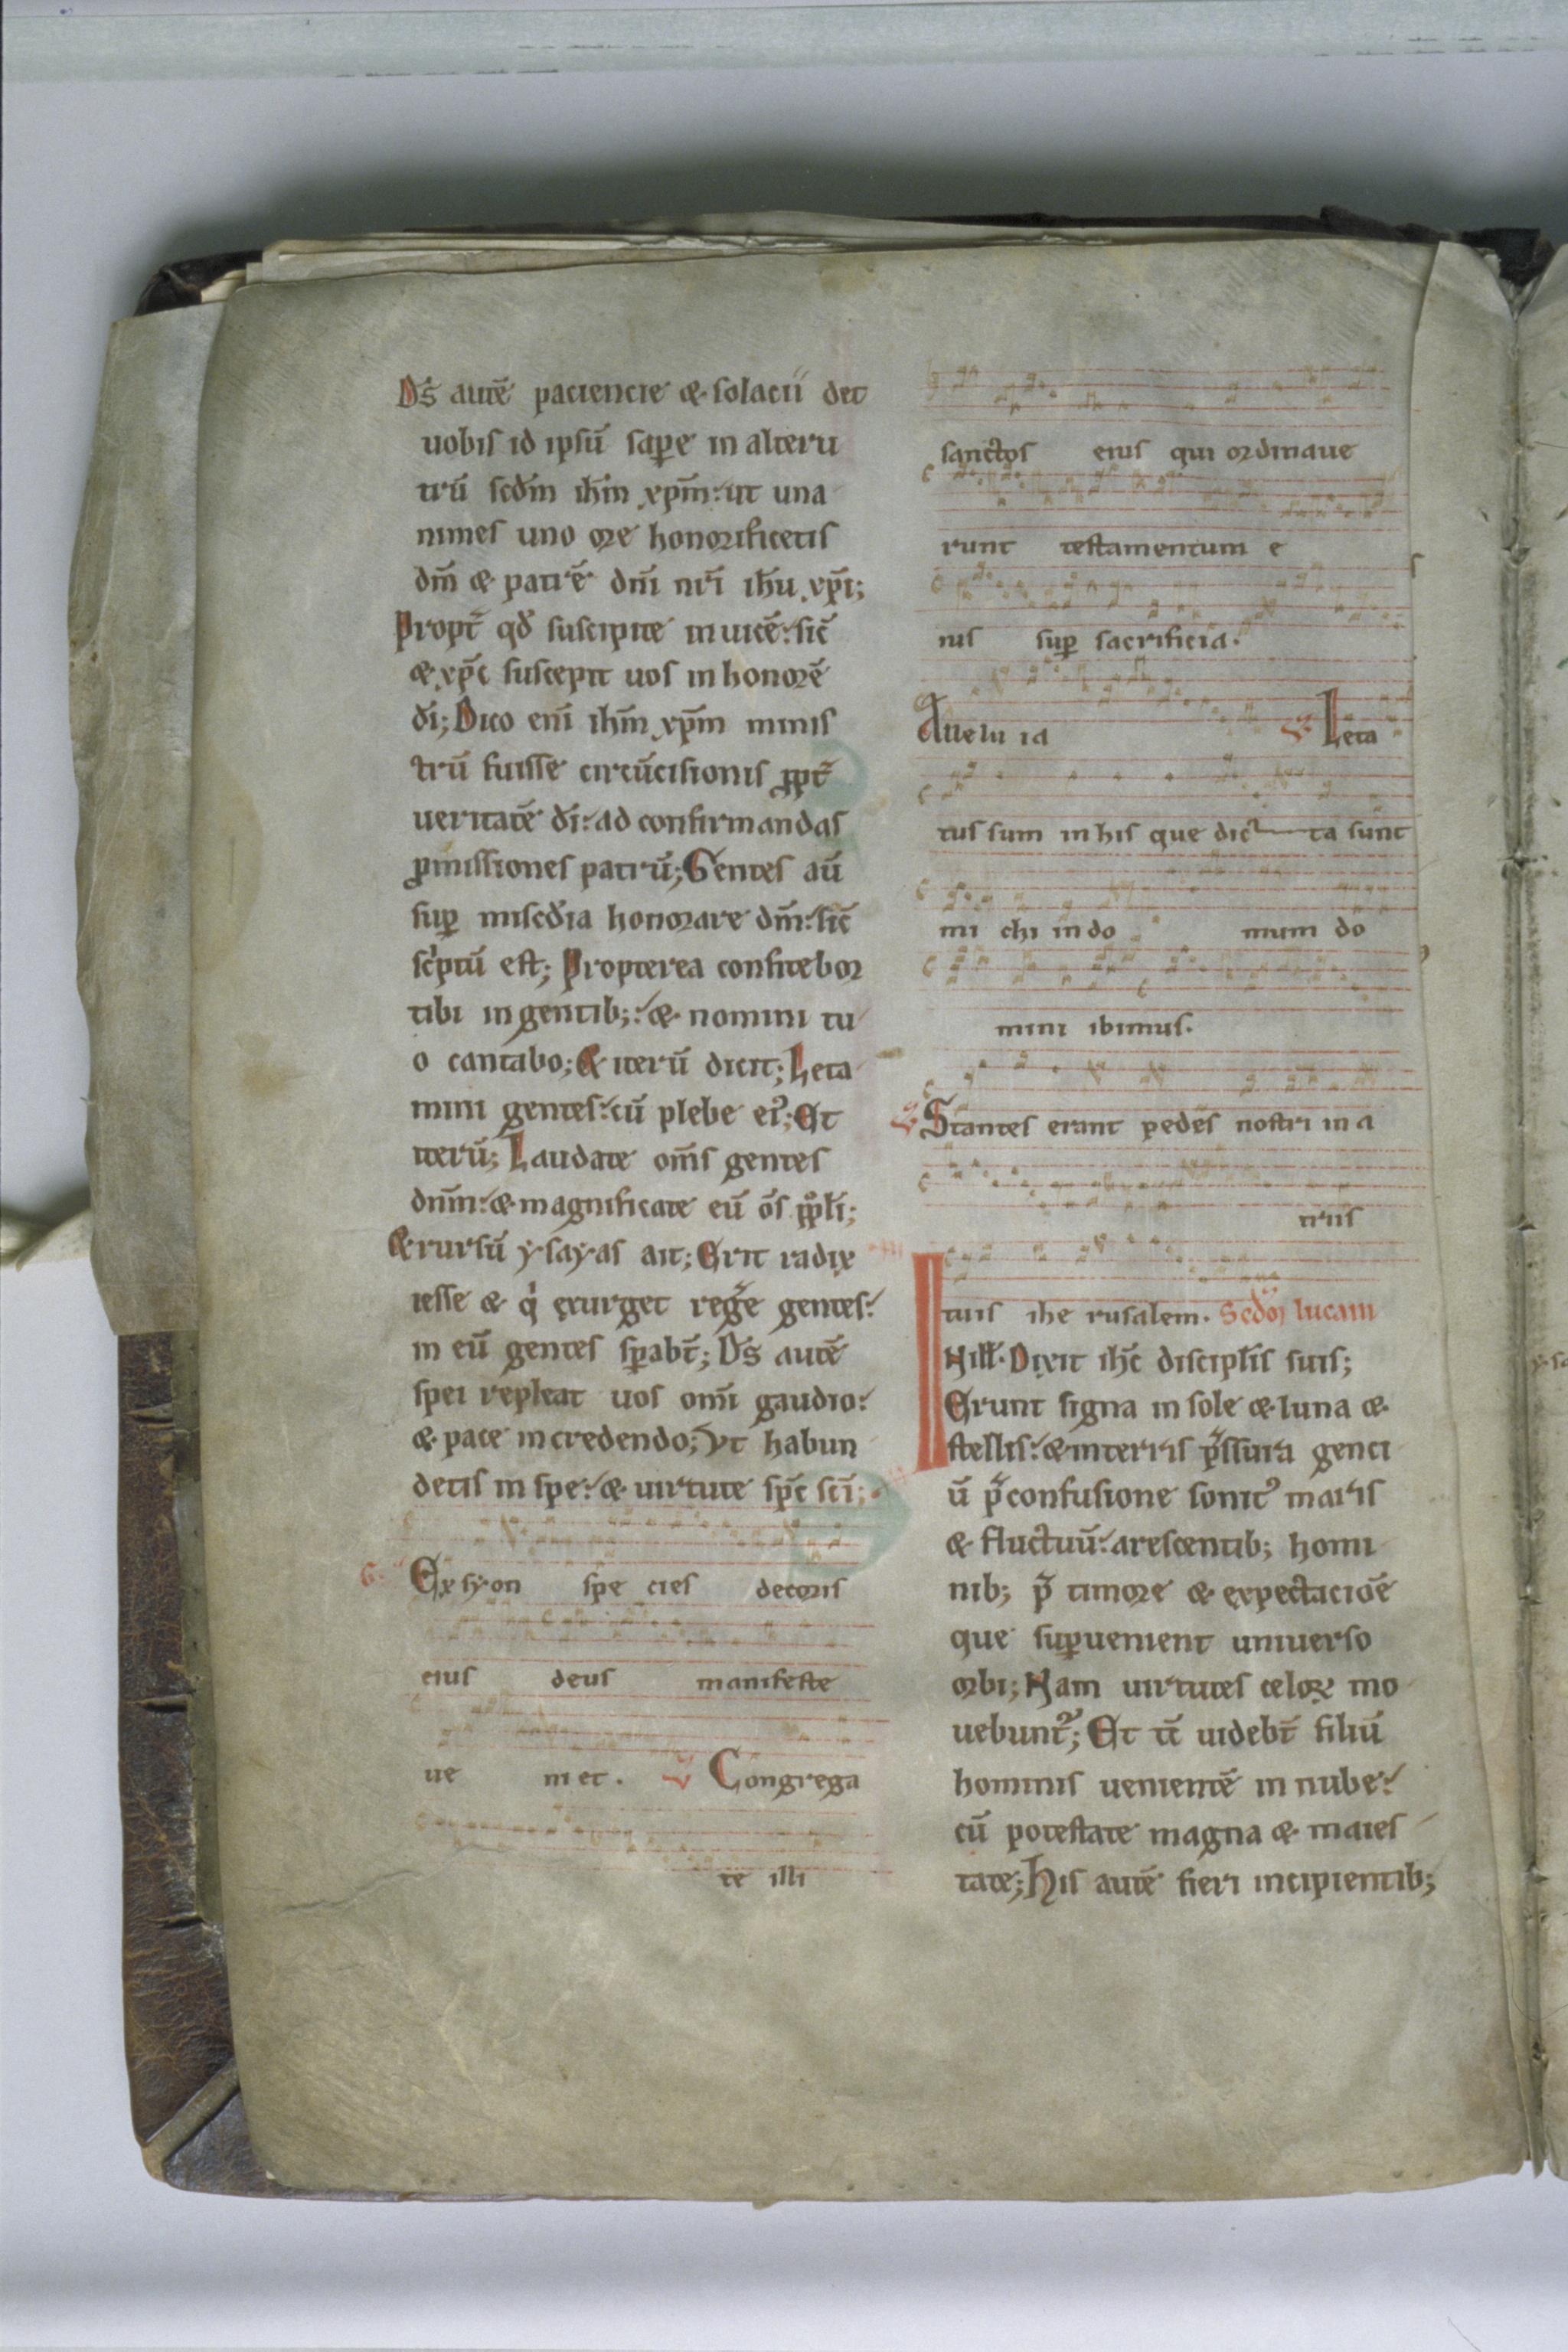 Ds̄ autē paciencie & solacii det
uobis id ipsū saꝑe in alteru
trū scd̄m ih̄m xp̄m: ut una
nimes uno ore honorificetis
dm̄ & patrē dn̄i nr̄i ih̄u xp̄i;
Propt̄ qd̄ suscipite inuicē: sic̄
& xp̄c suscepit uos in honorē
dī; Dico enī ih̄m xp̄m minis
trū fuisse circūcisionis ꝓpt̄
ueritatē dī: ad confirmandas
ꝓmissiones patrū; Gentes aū
suꝑ misc̄dia honorare dm̄: sic̄
sc̍ptū est; Propterea confitebor
tibi in gentib;: & nomini tu
o cantabo; & iterū dicit; Leta
mini gentes: cū plebe eiꝰ; Et
iterū; Laudate om̄s gentes
dn̄m: & magnificate eū ōs pp̄l̄i;
& rursū ẏsaẏas ait; Erit radix
iesse & q̍ exurget reg̃e gentes:
in eū gentes sꝑabt̄; Ds̄ autē
spei repleat uos om̄i gaudio:
& pace in credendo; Vt habun
detis in spe: & uirtute sp̄c sc̄i;
G. Ex sẏon spe cies decoris
eius deus manifeste
ue niet. V Congrega
te illi
sanctos eius qui ordinaue
runt testamentum e
ius suꝑ sacrificia.
Alleluia V Leta
tus sum in his que dic ta sunt
mi chi in do mum do
mini ibimus.
V Stantes erant pedes nostri in a
triis
tuis ihe rusalem. Scd̄m lucam
IN ill̄. Dixit ih̄c discipl̄is suis;
Erunt signa in sole & luna &
stellis: & in terris p̃ssura genci
ū p̃ confusione sonitꝰ maris
& fluctuū: arescentib; homi
nib; p̃ timore & expectaciōe
que suꝑuenient uniuerso
orbi; Nam uirtutes celoꝝ mo
uebunt᷑; Et tc̄ uidebt̄ filiū
hominis uenientē in nube:
cū potestate magna & maies
tate; His autē fieri incipientib;